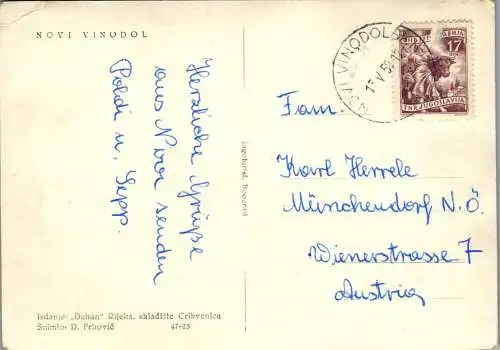 NOVI VINODOL
Herzliche Grüße
aus Novi senden
Poldi u. Sepp.
Jugoturist, Beograd
Izdanje: „Duhan" Rijeka, skladište Crikvenica
Snimio: D. Prković
47-23
NOVI VINODOLSKI
17
FNR JUGOSLAVIJA
Fam.
Karl Herrele
Münchendorf N.Ö.
Wienerstrasse 7
Austria